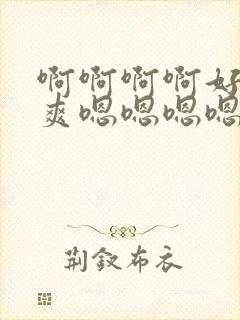 啊啊啊啊好
爽嗯嗯嗯嗯
荆钗布衣